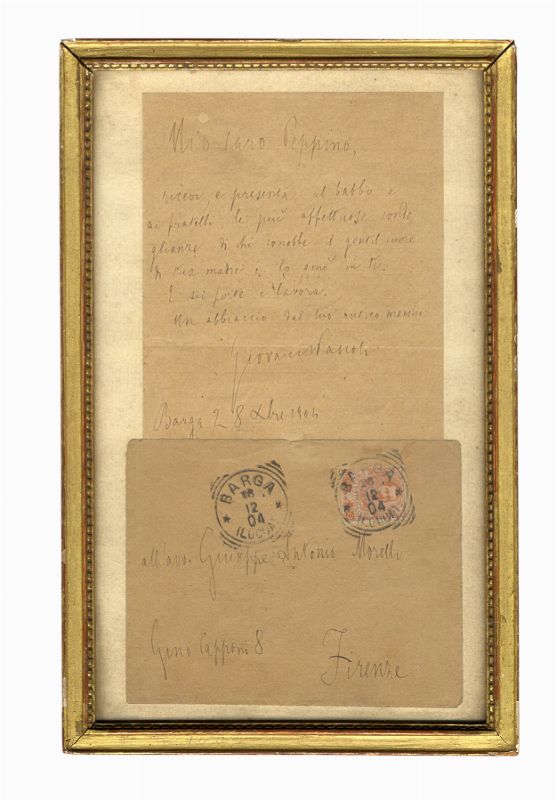 Mio caro Peppino,
ricevi, e presenta al babbo e
ai fratelli le più affettuose condo
glianze di chi conobbe il gentil cuore
di tua madre e lo amò in te.
E sii forte e lavora.
Un abbraccio dal tuo antico maestro
Giovanni Pascoli
Barga 28 Xbre 1904
BARGA
12
04
(LUCCA)
BARGA
12
04
(LUCCA)
all'avv. Giuseppe Antonio Morelli
Gino Capponi 8
Firenze